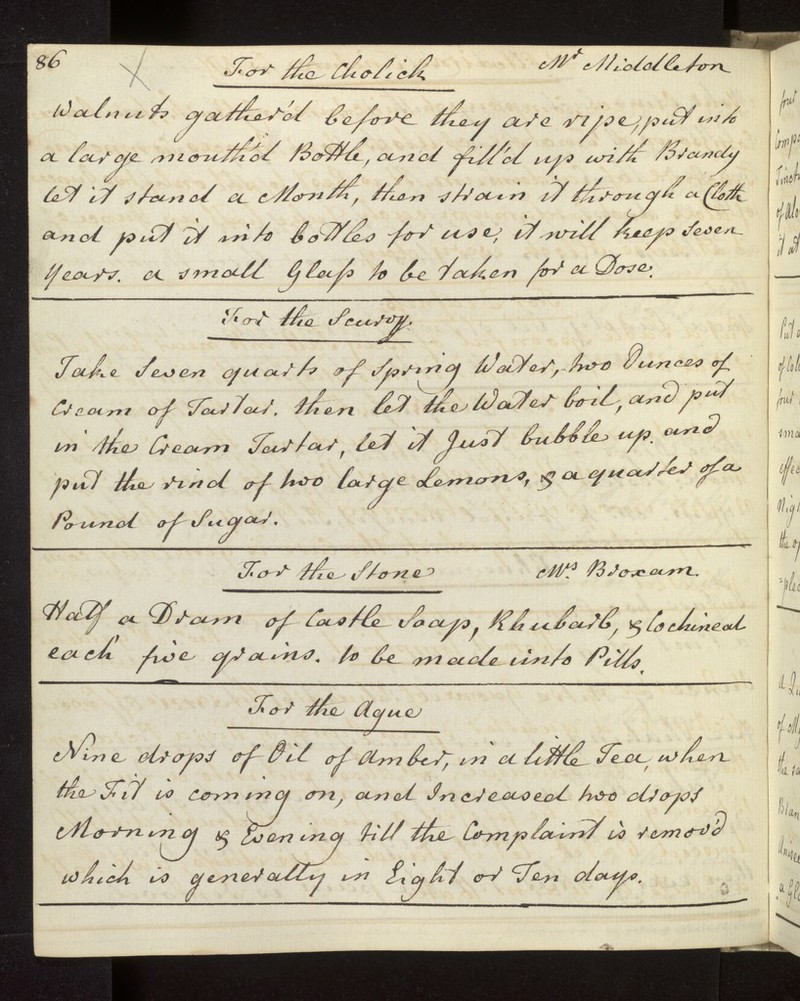 86 For the Cholick Mr Middleton
Walnuts gather'd before they are ripe, put into
a large mouth'd Bottle, and fill'd up with Brandy
let it stand a Month, then strain it through a Cloth
and put it into bottles for use, it will keep Seven
Years. a small Glass to be taken for a Dose.
For the Scurvy.
Take Seven quarts of Spring Water, two Ounces of
Cream of Tartar. then let the Water boil, and put
in the Cream Tartar, let it Just bubble up. and
put the rind of two large Lemons, & a quarter of a
Pound of Sugar.
For the Stone Mrs. Bloxam.
Half a Dram of Castle Soap, Rhubarb, & Cochineal
each five grains. to be made into Pills.
For the Ague
Nine drops of Oil of Amber, in a little Tea, when
the Fit is coming on, and Increased two drops
Morning & Evening till the Complaint is remov'd
which is generally in Eight or Ten days.